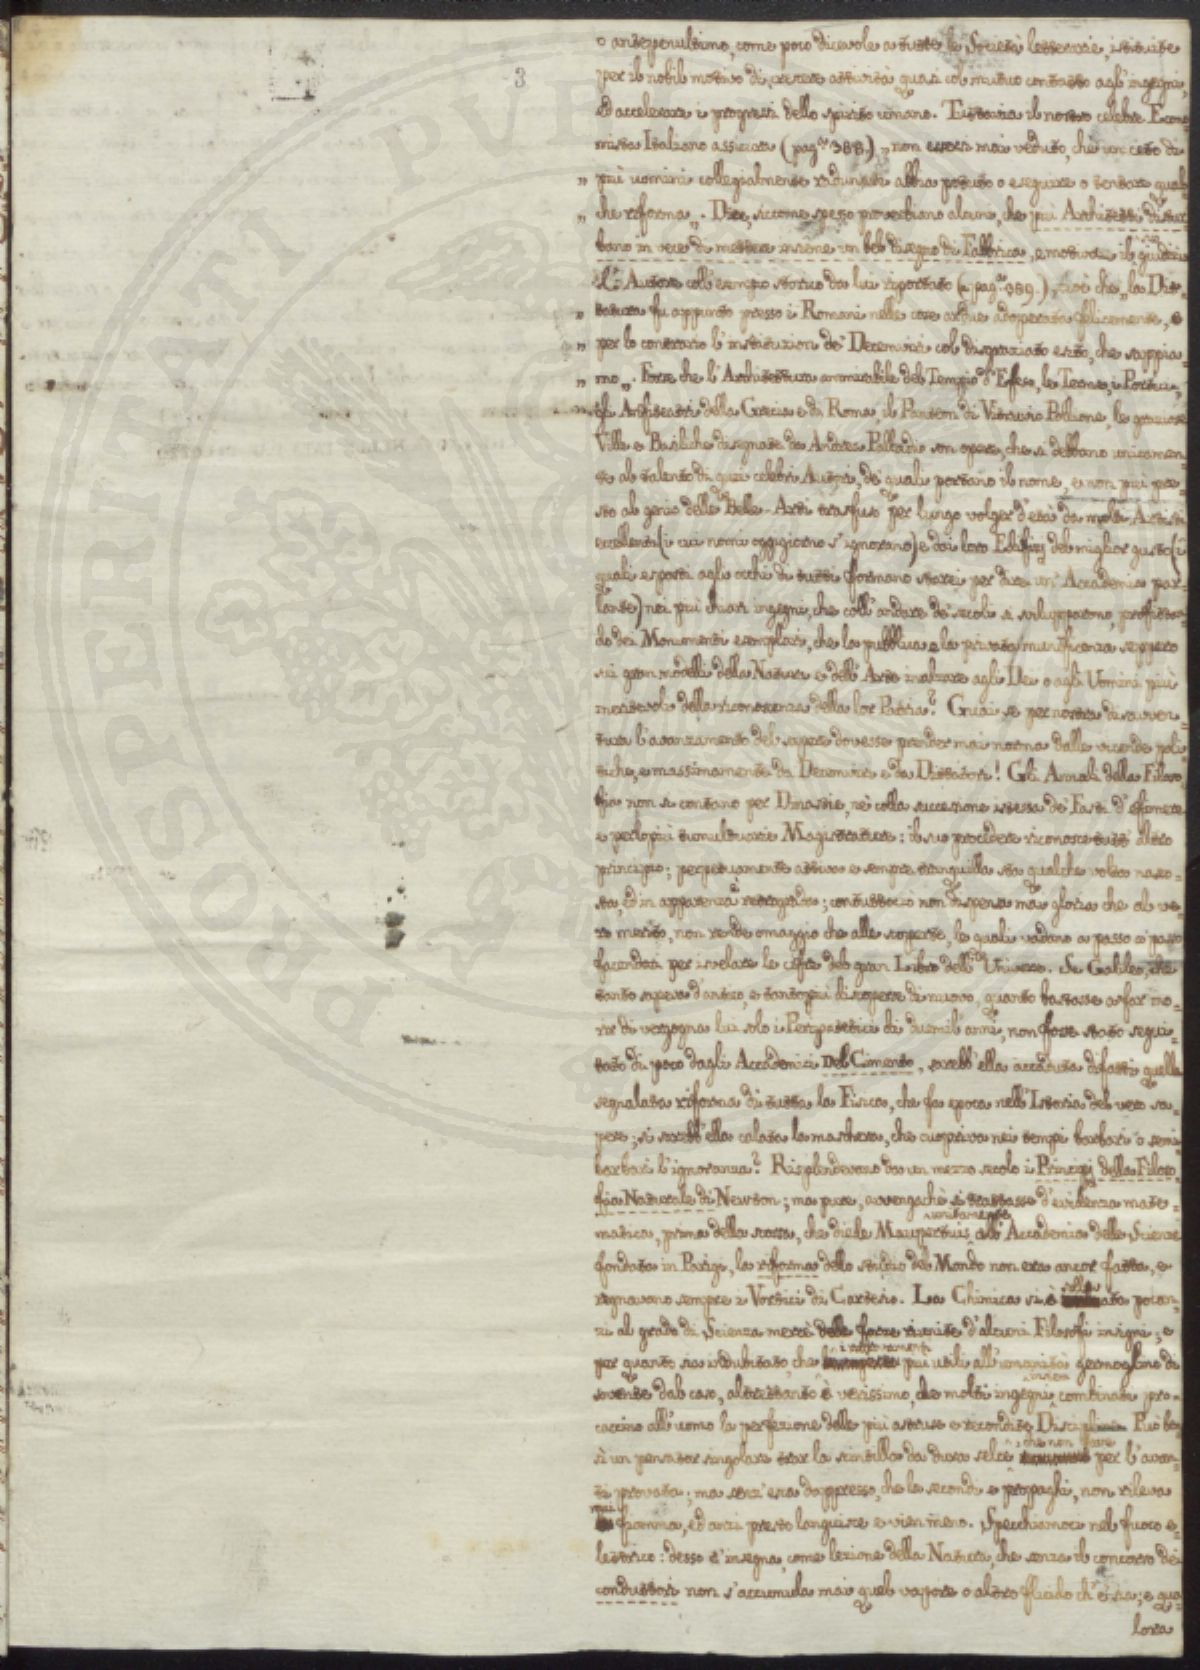 3
o antepenultimo, come poco dicevole a tutte le Società letterarie, istituite
per il nobil motivo di crescere attività quasi col mutuo contatto agl'ingegni,
ed accelerare i progressi dello spirito umano. Tuttavia il nostro celebre Econo-
mista Italiano assicura (pag.ª 388.) „ non essersi mai veduto, che un ceto di
„ più uomini collegialmente radunati abbia potuto o eseguire o tentare qual-
„ che riforma „. Dice, siccome spesso proverbiano alcuni, che più Architetti distur-
bano in vece di mettere insieme un bel disegno di Fabbrica, e motiva il giudizio
l'Autore coll'esempio storico da lui riportato (a pag.ª 389.), cioè che „ la Dit-
„ tatura fu appunto presso i Romani nelle cose ardue adoperata felicemente, e
„ per lo contrario l'instituzion de' Decemviri col disgraziato esito, che sappia-
„ mo „. Forse che l'Architettura ammirabile del Tempio d'Efeso, le Terme, i Portici,
gli Anfiteatri della Grecia e di Roma, il Panteon di Vitruvio Pollione, le graziose
Ville e Basiliche disegnate da Andrea Palladio son opere, che si debbano unicamen-
te al talento di quei celebri Autori, de' quali portano il nome, e non più pre-
sto al genio delle Belle-Arti trasfuso per lungo volger d'età da molti Artisti
eccellenti (i cui nomi oggigiorno s'ignorano) e dai loro Edifizj del miglior gusto (i
quali esposti agli occhi di tutti formano starei per dire un'Accademia par-
lante) nei più chiari ingegni, che coll'andare de' secoli si svilupparono, profittan-
do dei Monumenti esemplari, che la pubblica e la privata munificenza seppero
sui gran modelli della Natura e dell'Arte inalzare agli Dei o agli Uomini più
meritevoli della riconoscenza della lor Patria? Guai se per nostra disavven-
tura l'avanzamento del sapere dovesse prender mai norma dalle vicende poli-
tiche, e massimamente da Decemviri e da Dittatori! Gli Annali della Filoso-
fia non si contano per Dinastie, nè colla successione istessa de' Fasti d'efimere
e perlopiù tumultuarie Magistrature: il suo procedere riconosce tutt'altro
principio; perpetuamente attiva e sempre tranquilla sta qualche volta nasco-
sta, ed in apparenza retrograda; contuttociò non dispensa mai gloria che al ve-
ro merito, non rende omaggio che alle scoperte, le quali vadano a passo a passo
facendosi per isvelare le cifre del gran Libro dell'Universo. Se Galileo, che
tanto sapeva d'antico, e tantopiù discoperse di nuovo, quanto bastasse a far mo-
rir di vergogna lui solo i Peripatetici di duemil'anni, non fosse stato segui-
tato di poco dagli Accademici del Cimento, sarebb'ella accaduta difatti quella
segnalata riforma di tutta la Fisica, che fa epoca nell'Istoria del vero sa-
pere; si sarebb'ella calata la maschera, che cuopriva nei tempi barbari o semi-
barbari l'ignoranza? Risplendevano da un mezzo secolo i Principj della Filoso-
fia Naturale di Newton; ma pure, avvengachè si trattasse d'evidenza mate-
matica, prima della scossa, che diede Maupertuis unitamente all'Accademia delle Scienze
fondata in Parigi, la riforma dello studio del Mondo non era ancor fatta, e
regnavano sempre i Vortici di Cartesio. La Chimica si è sollevata pocan-
zi al grado di Scienza mercè delle forze riunite d'alcuni Filosofi insigni; e
per quanto sia indubitato, che i ritrovamenti più utili all'umanità germoglino di
sovente dal caso, altrettanto è verissimo, che molti ingegni insiem combinati pro-
caccino all'uomo la perfezione delle più astruse e recondite Discipline. Può be-
sì un pensator singolare trar la scintilla da dura selce, che non fosse per l'avan-
ti provata; ma senz'esca dappresso, che la secondi e propaghi, non rileva
mai fiamma, ed anzi presto languisce e vien meno. Specchiamoci nel fuoco e-
lettrico: desso c'insegna, come lezione della Natura, che senza il concorso dei
conduttori non s'accumula mai quel vapore o altro fluido ch'e' sia; e qua-
lora